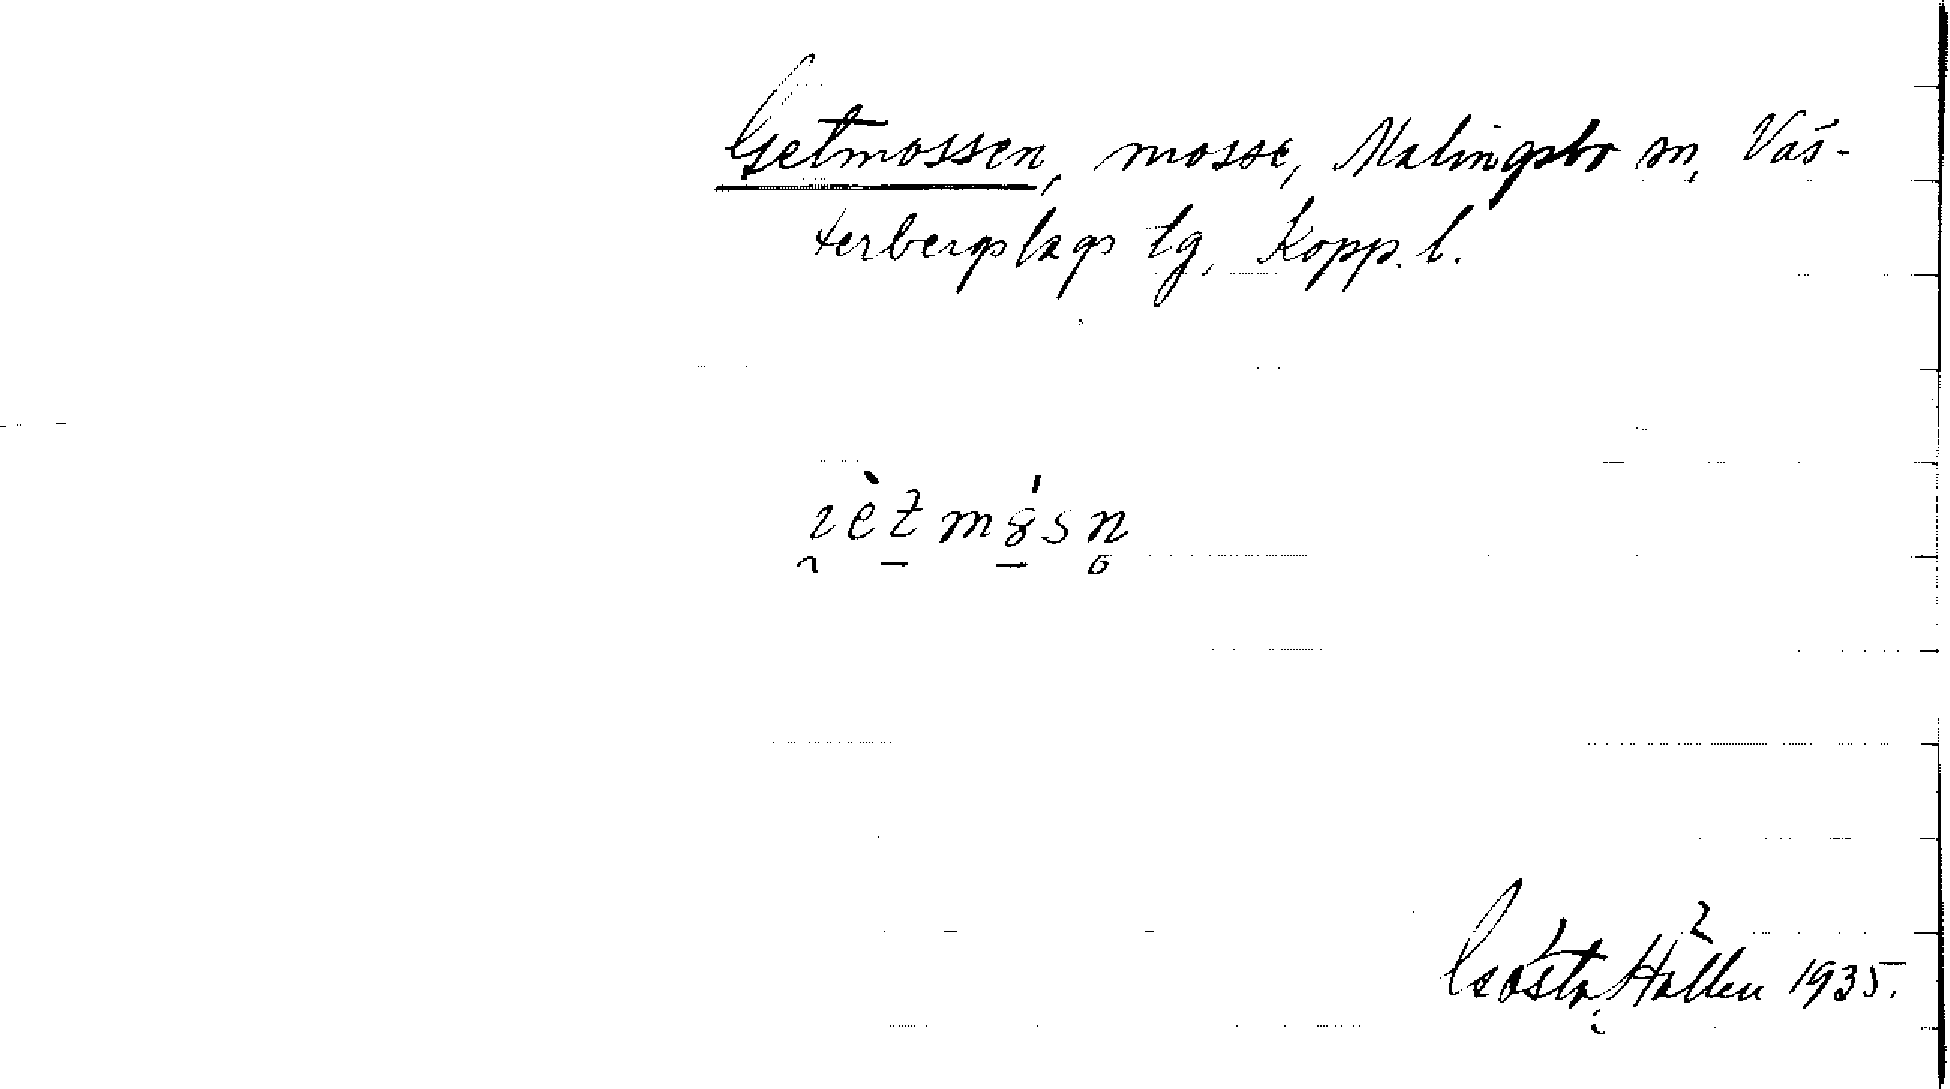 Getmossen, mosse, Malingsbo sn, Väs-
terbergslags tg, Kopp. l.
Gösta Hallén 1935.